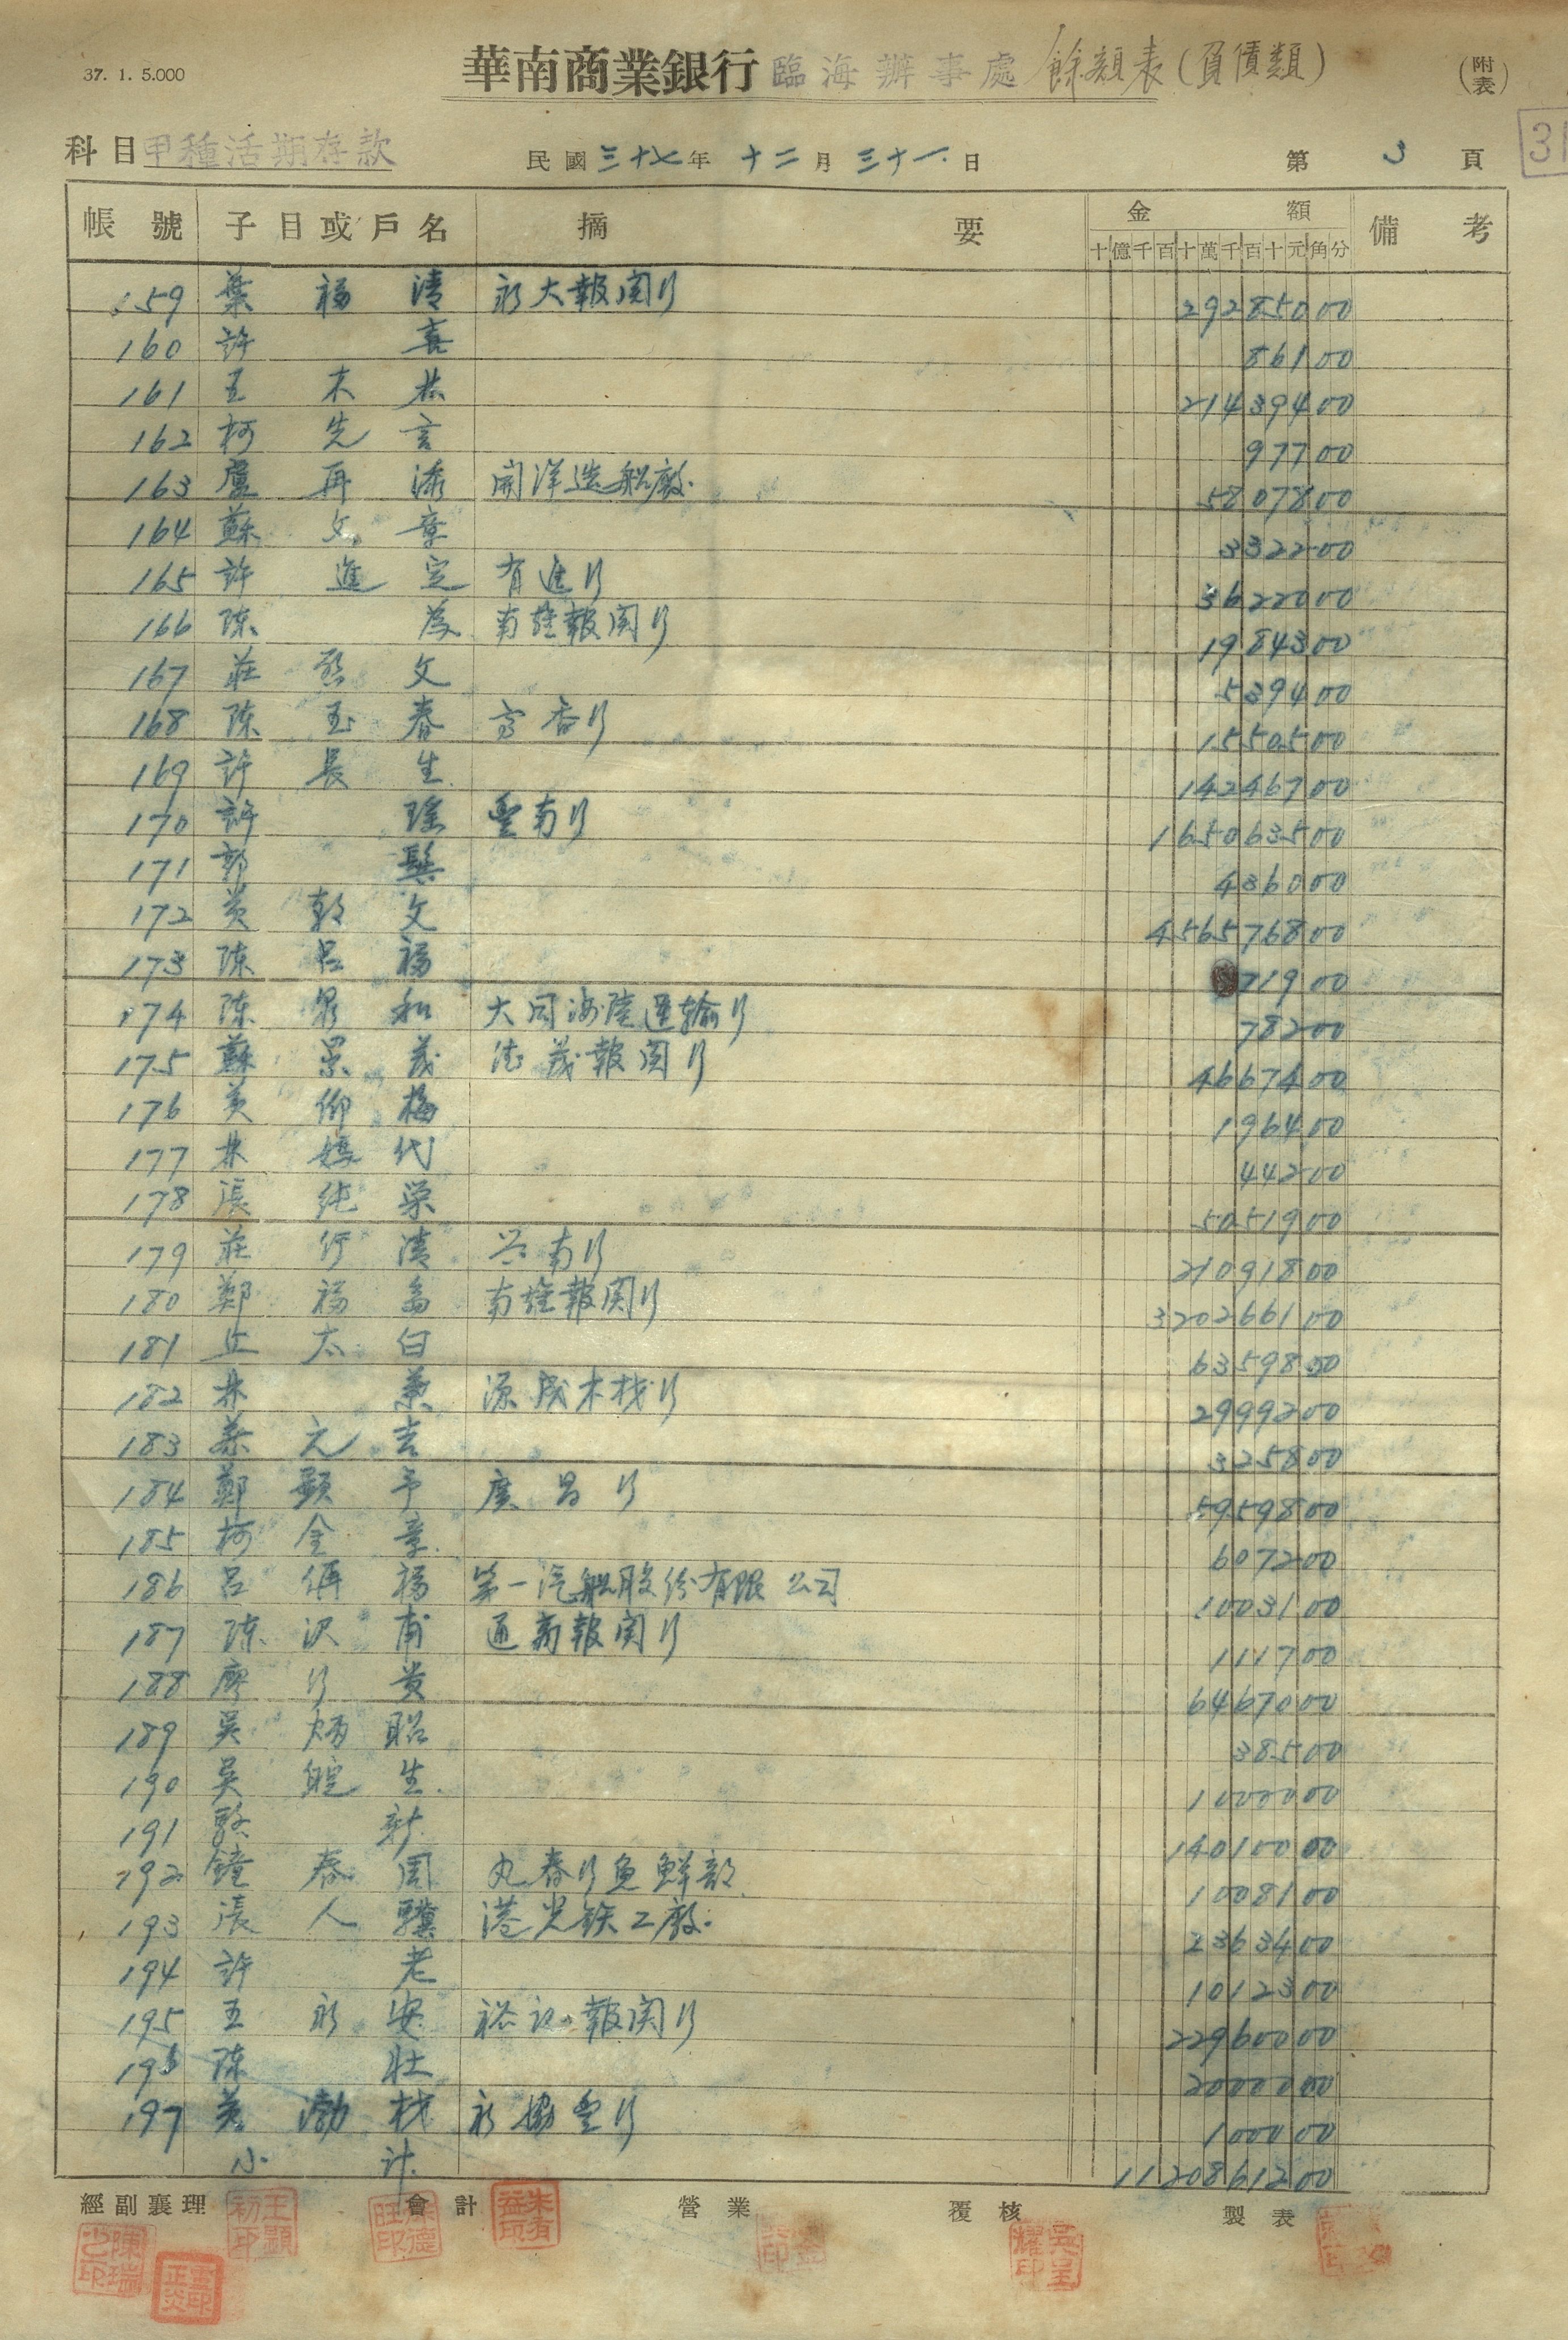 37. 1. 5.000
華南商業銀行 臨海辦事處 餘額表(負債類)
(附表)
科目 甲種活期存款 民國三十七年 十二月 三十一日 第 3 頁
31
帳號 子目或戶名 摘要 金額 備考
十億千百十萬千百十元角分
159 葉福清 永大報関行 292850 00
160 許喜 861 00
161 王木恭 214394 00
162 柯先言 977 00
163 盧再添 開洋造船廠 58078 00
164 蘇文章 3322 00
165 許進定 有進行 36220 00
166 陈為 南雄報関行 19843 00
167 莊啓文 5394 00
168 陈玉春 富香行 15505 00
169 許長生 142467 00
170 許瑤 豐南行 1650635 00
171 郭 4360 00
172 黄乾文 4565768 00
173 陈呂福 719 00
174 陈泉和 大同海陸運輸行 782 00
175 蘇景茂 德茂報関行 46674 00
176 黄仰梅 1964 00
177 林嬌代 442 00
178 張純栄 50519 00
179 莊行清 兴南行 210918 00
180 鄭福島 南雄報関行 3202661 00
181 丘太白 63598 00
182 林 源成木材行 29992 00
183 蔡元吉 3258 00
184 鄭顕予 廣昌行 59598 00
185 柯全章 6072 00
186 呂傳福 第一汽船股份有限公司 10031 00
187 陈沢甫 通商報関行 1117 00
188 廖行貴 64670 00
189 吳炳昭 385 00
190 吳生 10000 00
191 新 140100 00
192 鐘春周 丸春行魚鮮部 10081 00
193 張人驥 港光鉄工廠 23634 00
194 許老 10123 00
195 王永安 裕記報関行 229600 00
196 陈壯 20000 00
197 黄渤材 永協豐行 1000 00
小計 11208612 00
經副襄理 會計 營業 覆核 製表